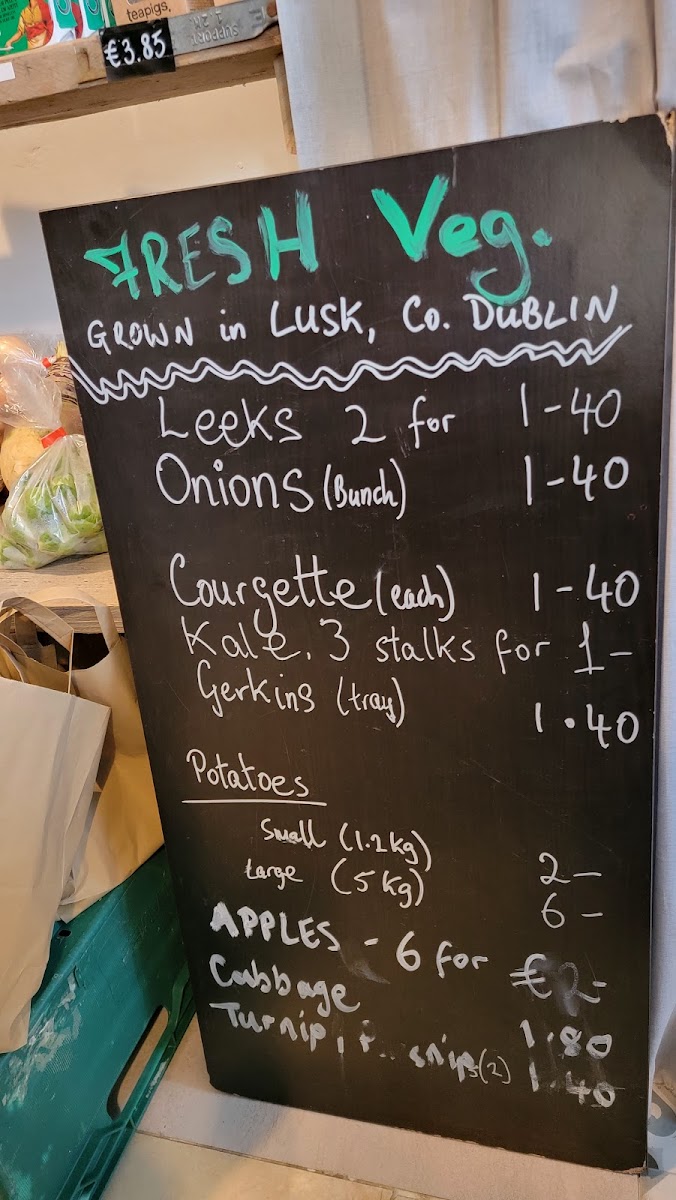 teapigs.
€3.85
SUPPORT
FRESH Veg.
GROWN in LUSK, Co. DUBLIN
Leeks 2 for 1-40
Onions (Bunch) 1-40
Courgette (each) 1-40
Kale. 3 stalks for 1-
Gerkins (tray) 1.40
Potatoes
Small (1.2kg) 2-
Large (5kg) 6-
APPLES - 6 for €2-
Cabbage 1.80
Turnip, (2) 1.40